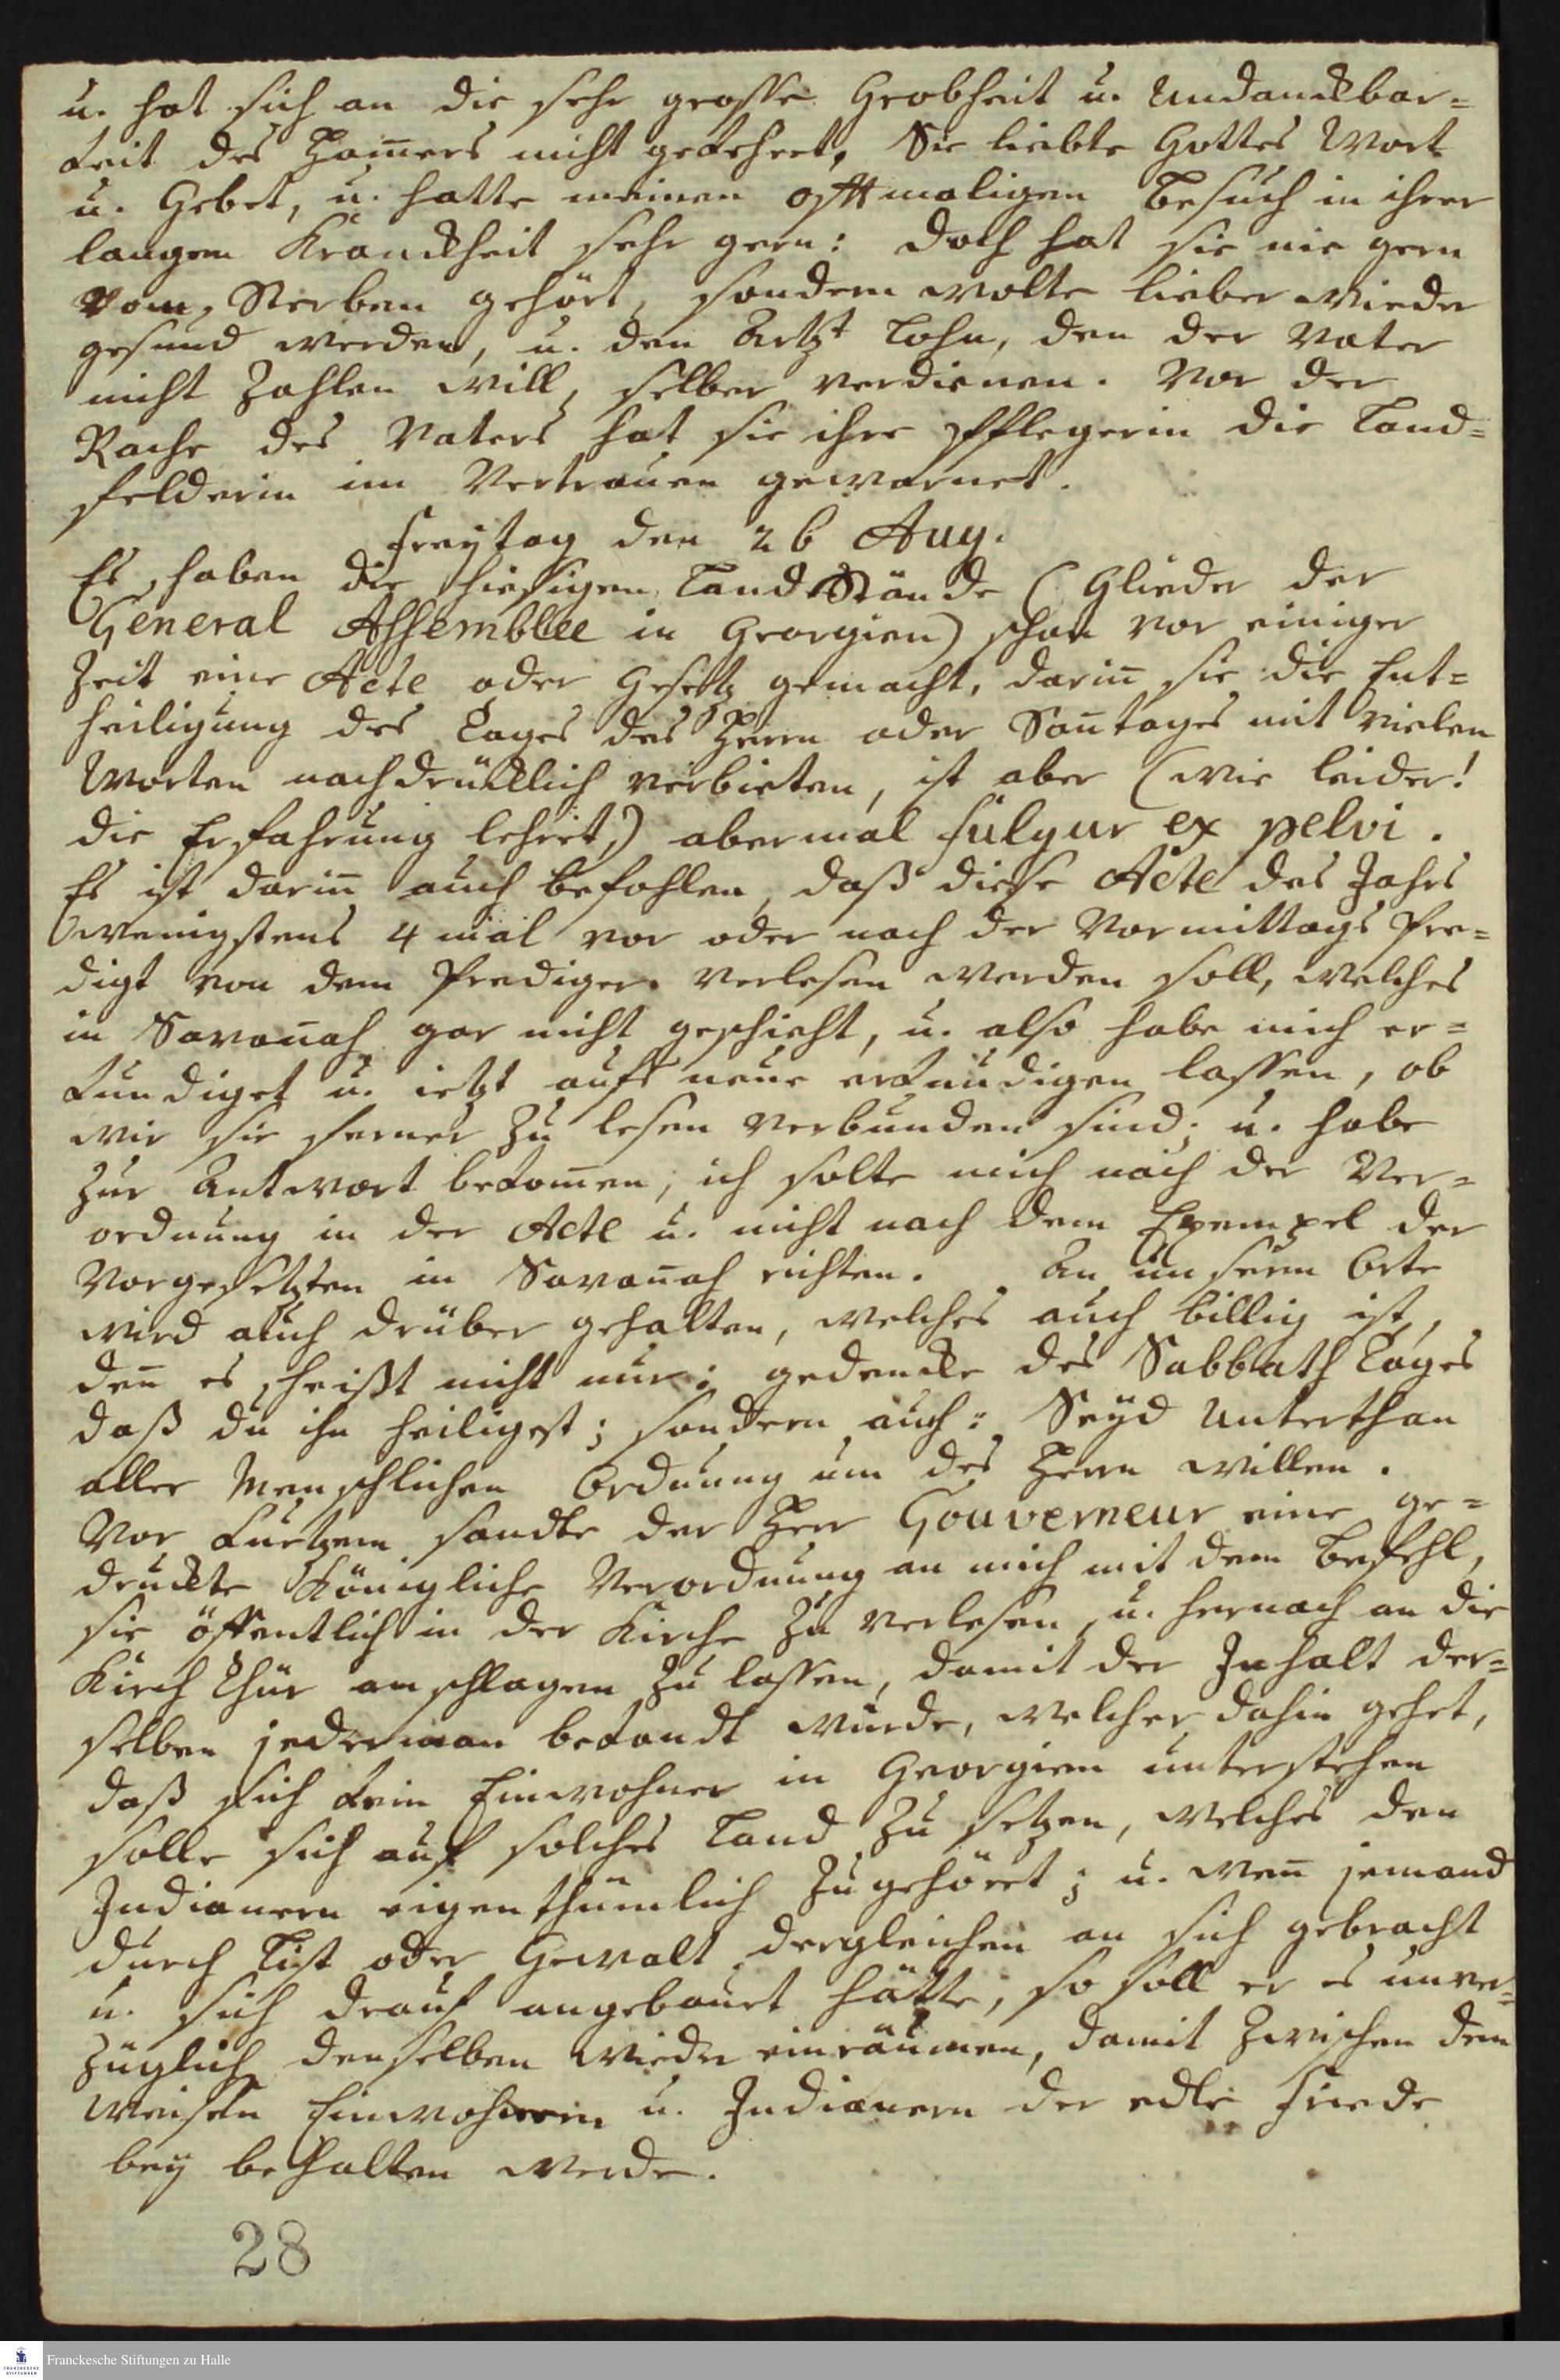 u. hat sich an die sehr grosse Grobheit u. Undanckbar=
keit des Ham̄ers nicht gekehret, Sie liebte Gottes Wort
u. Gebet, u. hatte meinen offtmaligen Besuch in ihrer
langen Kranckheit sehr gern: doch hat sie nie gern
vom Sterben gehört, sondern wolte lieber wieder
gesund werden, u. den Artzt Lohn, den der Vater
nicht zahlen will, selber verdienen. Vor der
Rache des Vaters hat sie ihre Pflegerin die Land=
felderin im Vertrauen gewarnet.
Freytag den 26 Aug.
Es haben die hiesigen Land Stände (Glieder der
General Assemblee in Georgien) schon vor einiger
Zeit eine Acte oder Gesetz gemacht, darin̄ sie die Ent=
heiligung des Tages des Herrn oder Son̄tages mit vielen
Worten nachdrücklich verbieten, ist aber (wie leider!
die Erfahrung lehret,) abermal fulgur ex pelvi.
Es ist darin̄ auch befohlen, daß diese Acte des Jahrs
wenigstens 4 mal vor oder nach der Vormittags Pre=
digt von dem Prediger verlesen werden soll, welches
in Savan̄ah gar nicht geschieht, u. also habe mich er=
kundiget u. ietzt aufs neue erkundigen lassen, ob
wir sie ferner zu lesen verbunden sind; u. habe
zur Antwort bekom̄en, ich solte mich nach der Ver=
ordnung in der Acte u. nicht nach dem Exempel der
Vorgesetzten in Savan̄ah richten. An unserm Orte
wird auch drüber gehalten, welches auch billig ist,
den̄ es heißt nicht nur: gedencke des Sabbath Tages
daß du ihn heiligest; sondern auch: Seyd Unterthan
aller Menschlichen Ordnung um des Herrn willen.
Vor kurtzem sandte der Herr Gouverneur eine ge=
druckte Königliche Verordnung an mich mit dem Befehl,
sie öffentlich in der Kirche zu verlesen, u. hernach an die
Kirch Thür anschlagen zu lassen, damit der Inhalt der=
selben jederman bekandt wurde, welcher dahin gehet,
daß sich kein Einwohner in Georgien unterstehen
solle sich auf solches Land zu setzen, welches den
Indianern eigenthümlich zugehöret; u. wen̄ jemand
durch List oder Gewalt dergleichen an sich gebracht
u. sich drauf angebauet hätte, so soll er es unver=
züglich denselben wieder einräumen, damit zwischen den
weisen Einwohnern u. Indianern der edle Friede
bey behalten werde.
28
Franckesche Stiftungen zu Halle